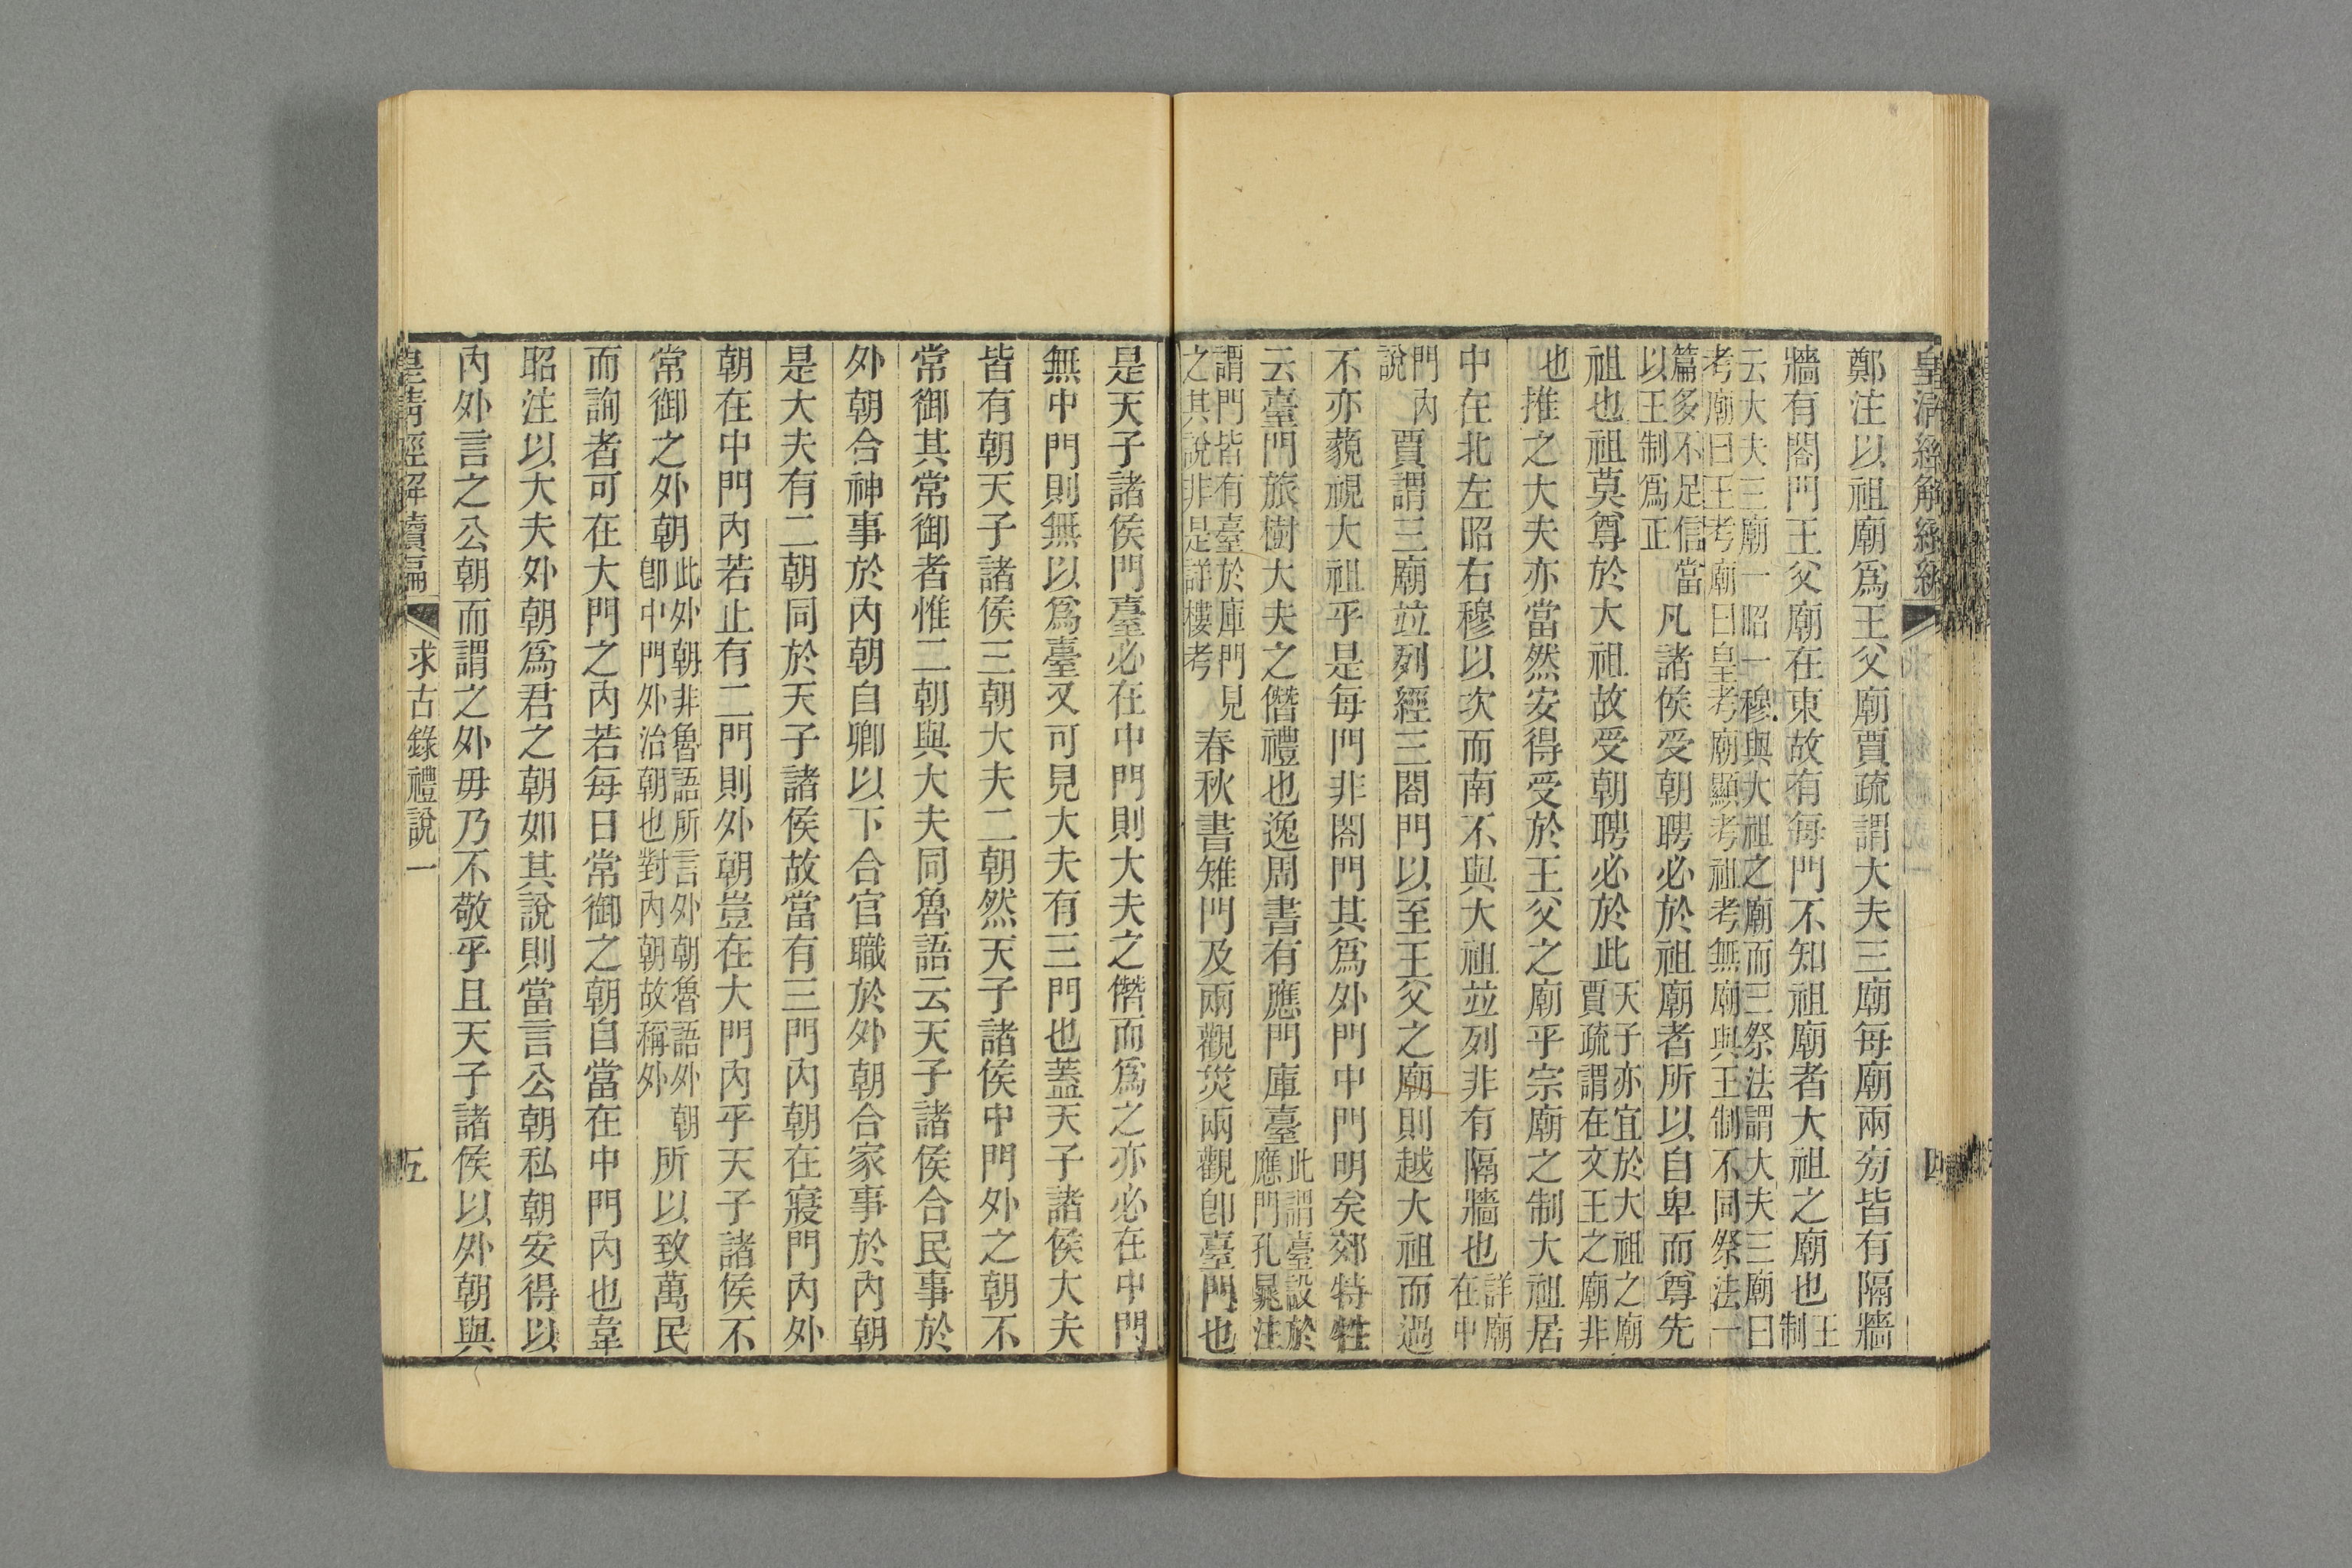 皇清經解續編 四
鄭注以祖廟爲王父廟賈疏謂大夫三廟每廟兩旁皆有隔牆
牆有閤門王父廟在東故有每門不知祖廟者大祖之廟也王
制
云大夫三廟一昭一穆與大祖之廟而三祭法謂大夫三廟曰
考廟曰王考廟曰皇考廟顯考祖考無廟與王制不同祭法一
篇多不足信當
以王制爲正
凡諸侯受朝聘必於祖廟者所以自卑而尊先
祖也祖莫尊於大祖故受朝聘必於此
天子亦宜於大祖之廟
賈疏謂在文王之廟非
也推之大夫亦當然安得受於王父之廟乎宗廟之制大祖居
中在北左昭右穆以次而南不與大祖竝列非有隔牆也
詳廟
在中
門內
說
賈謂三廟竝列經三閤門以至王父之廟則越大祖而過
不亦藐視大祖乎是每門非閤門其爲外門中門明矣郊特牲
云臺門旅樹大夫之僭禮也逸周書有應門庫臺
此謂臺設於
應門孔晁注
謂門皆有臺於庫門見
之其說非是詳樓考
春秋書雉門及兩觀災兩觀卽臺門也
是天子諸侯門臺必在中門則大夫之僭而爲之亦必在中門
無中門則無以爲臺又可見大夫有三門也蓋天子諸侯大夫
皆有朝天子諸侯三朝大夫二朝然天子諸侯中門外之朝不
常御其常御者惟二朝與大夫同魯語云天子諸侯合民事於
外朝合神事於內朝自卿以下合官職於外朝合家事於內朝
是大夫有二朝同於天子諸侯故當有三門內朝在寢門內外
朝在中門內若止有二門則外朝豈在大門內乎天子諸侯不
常御之外朝
此外朝非魯語所言外朝魯語外朝
卽中門外治朝也對內朝故稱外
所以致萬民
而詢者可在大門之內若每日常御之朝自當在中門內也韋
昭注以大夫外朝爲君之朝如其說則當言公朝私朝安得以
內外言之公朝而謂之外毋乃不敬乎且天子諸侯以外朝與
皇清經解續編 求古錄禮說一 五